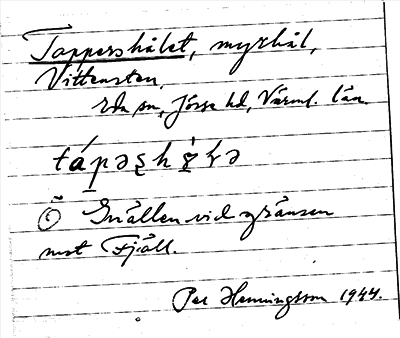 Tappershålet, myrhål,
Vittensten,
Eda sn, Jösse hd, Värml. län.
tápəʂhǿ̀ɽə
Gnällen vid gränsen
mot Fjäll.
Per Henningsson 1944.